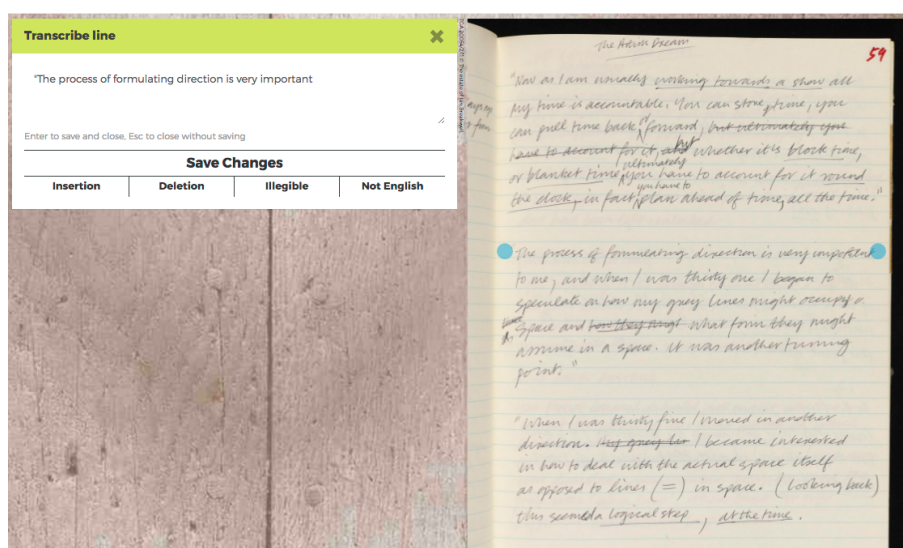 Transcribe line
"The process of formulating direction is very important
Enter to save and close, Esc to close without saving
Save Changes
Insertion Deletion Illegible Not English
The Dream
59
"Now as I am usually working towards a show all
my time is accountable. You can store, time, you
can pull time back, or forward, but ultimately you
have to account for it, and but whether it is block time,
ultimately
or blanket time, you have to account for it round
you have to
the clock, in fact, plan ahead of time, all the time."
The process of formulating direction is very important
to me, and when I was thirty one I began to
speculate on how my grey lines might occupy a
space and how they might what form they might
assume in a space. It was another turning
point."
"When I was thirty five I moved in another
direction. My grey I became interested
in how to deal with the actual space itself
as opposed to lines (=) in space. (Looking back)
this seemed a logical step, at the time.